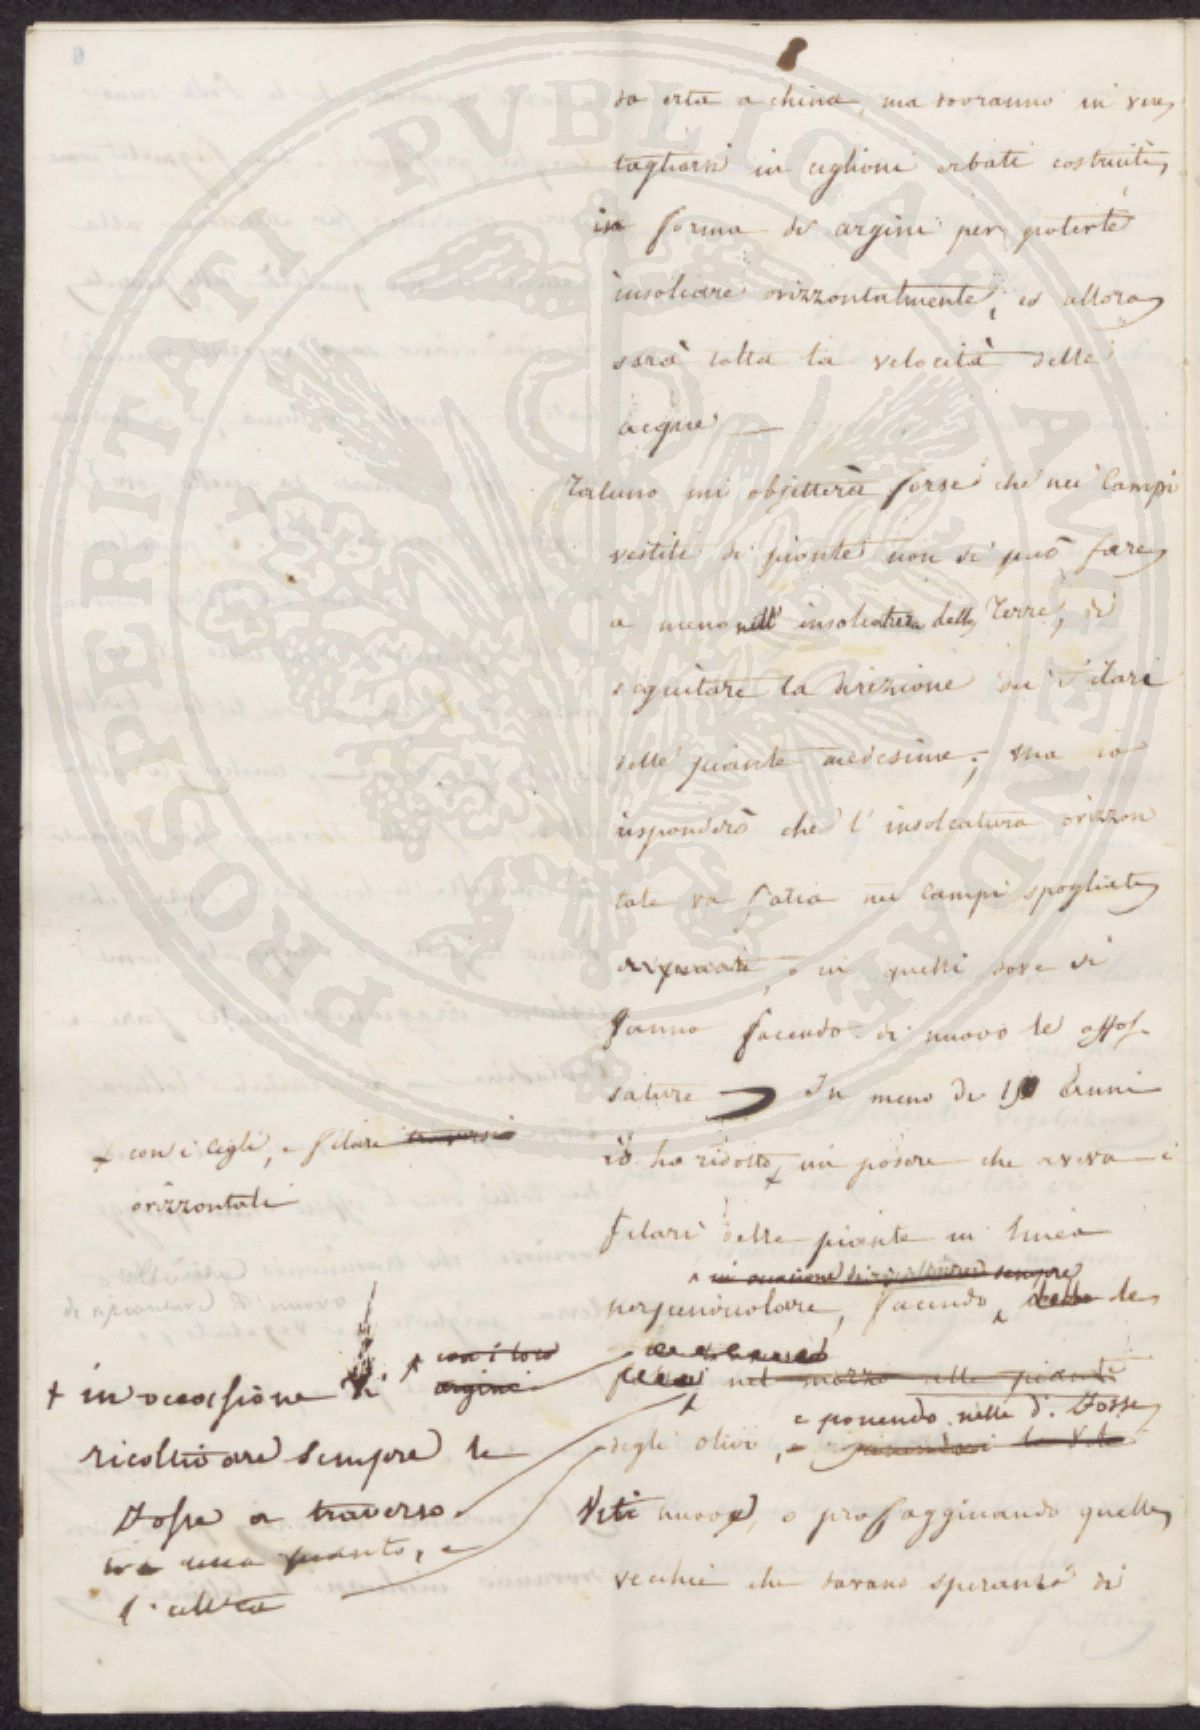 da erta a china, ma dovranno in vece
tagliarsi in ciglioni erbati costruiti
in forma di argini per poterle
insolcare orizzontalmente, ed allora
sarà tolta la velocità delle
acque —
Taluno mi objetterà forse che nei Campi
vestiti di piante non si può fare
a meno nell' insolcatura delle Terre, di
seguitare la direzione dei Filari
delle piante medesime; Ma io
risponderò che l' insolcatura orizzon
tale va fatta nei Campi spogliati
, e in quelli dove si
vanno facendo di nuovo le affos-
sature In meno di Anni
io ho ridotto + un podere che aveva i
+ con i cigli, e filari traversi
orizzontali
filari delle piante in linea
in occasione di ricoltivare sempre
perpendicolare, facendo delle
nel mezzo alle piante
degli olivi, e ponendo nelle d. Fosse
le Viti
Viti nuove, o propagginando quelle
vecchie che davano speranza di
+ in occasione di
ricoltivare sempre le
Fosse a traverso
tra una pianta, e
l'altra
con i loro
argini
PROSPERITATI PVBLICAE AVGENDAE
6